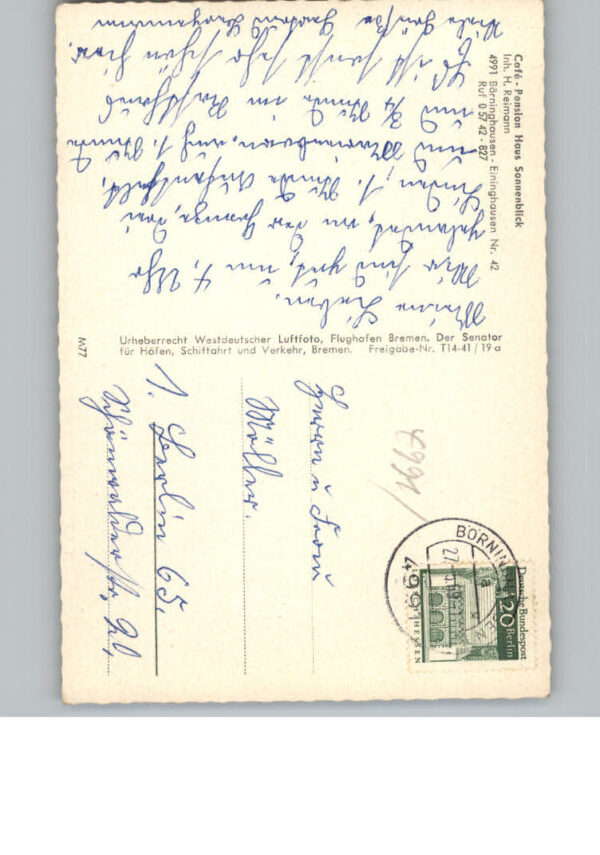 Café - Pension Haus Sonnenblick
Inh. H. Reimann
4991 Börninghausen - Eininghausen Nr. 42
Ruf 0 57 42 - 827
Meine Lieben.
Wir sind gut, um 4 Uhr
gelandet, an der Grenze, drei
Stunden, 1. Stunde Aufenthalt,
und Marienborn, auch 1. Stunde
und 3/4 Stunde im Rasthaus
Es ist sonst sehr schön hier.
Viele Grüße
M77
Urheberrecht Westdeutscher Luftfoto, Flughafen Bremen. Der Senator
für Häfen, Schiffahrt und Verkehr, Bremen. Freigabe-Nr. T14-41 / 19 a
4991
Herrn u Frau
Möller.
1. Berlin 65.
4991 BÖRNING
a
Deutsche Bundespost
20 Berlin